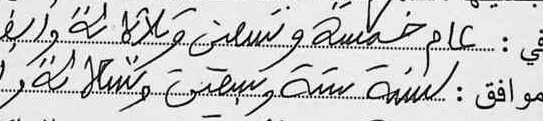 في : عام خمسة و تسعين و ثلاثمائة وألف
موافق : لسنة ستة وسبعين وتسعمائة و